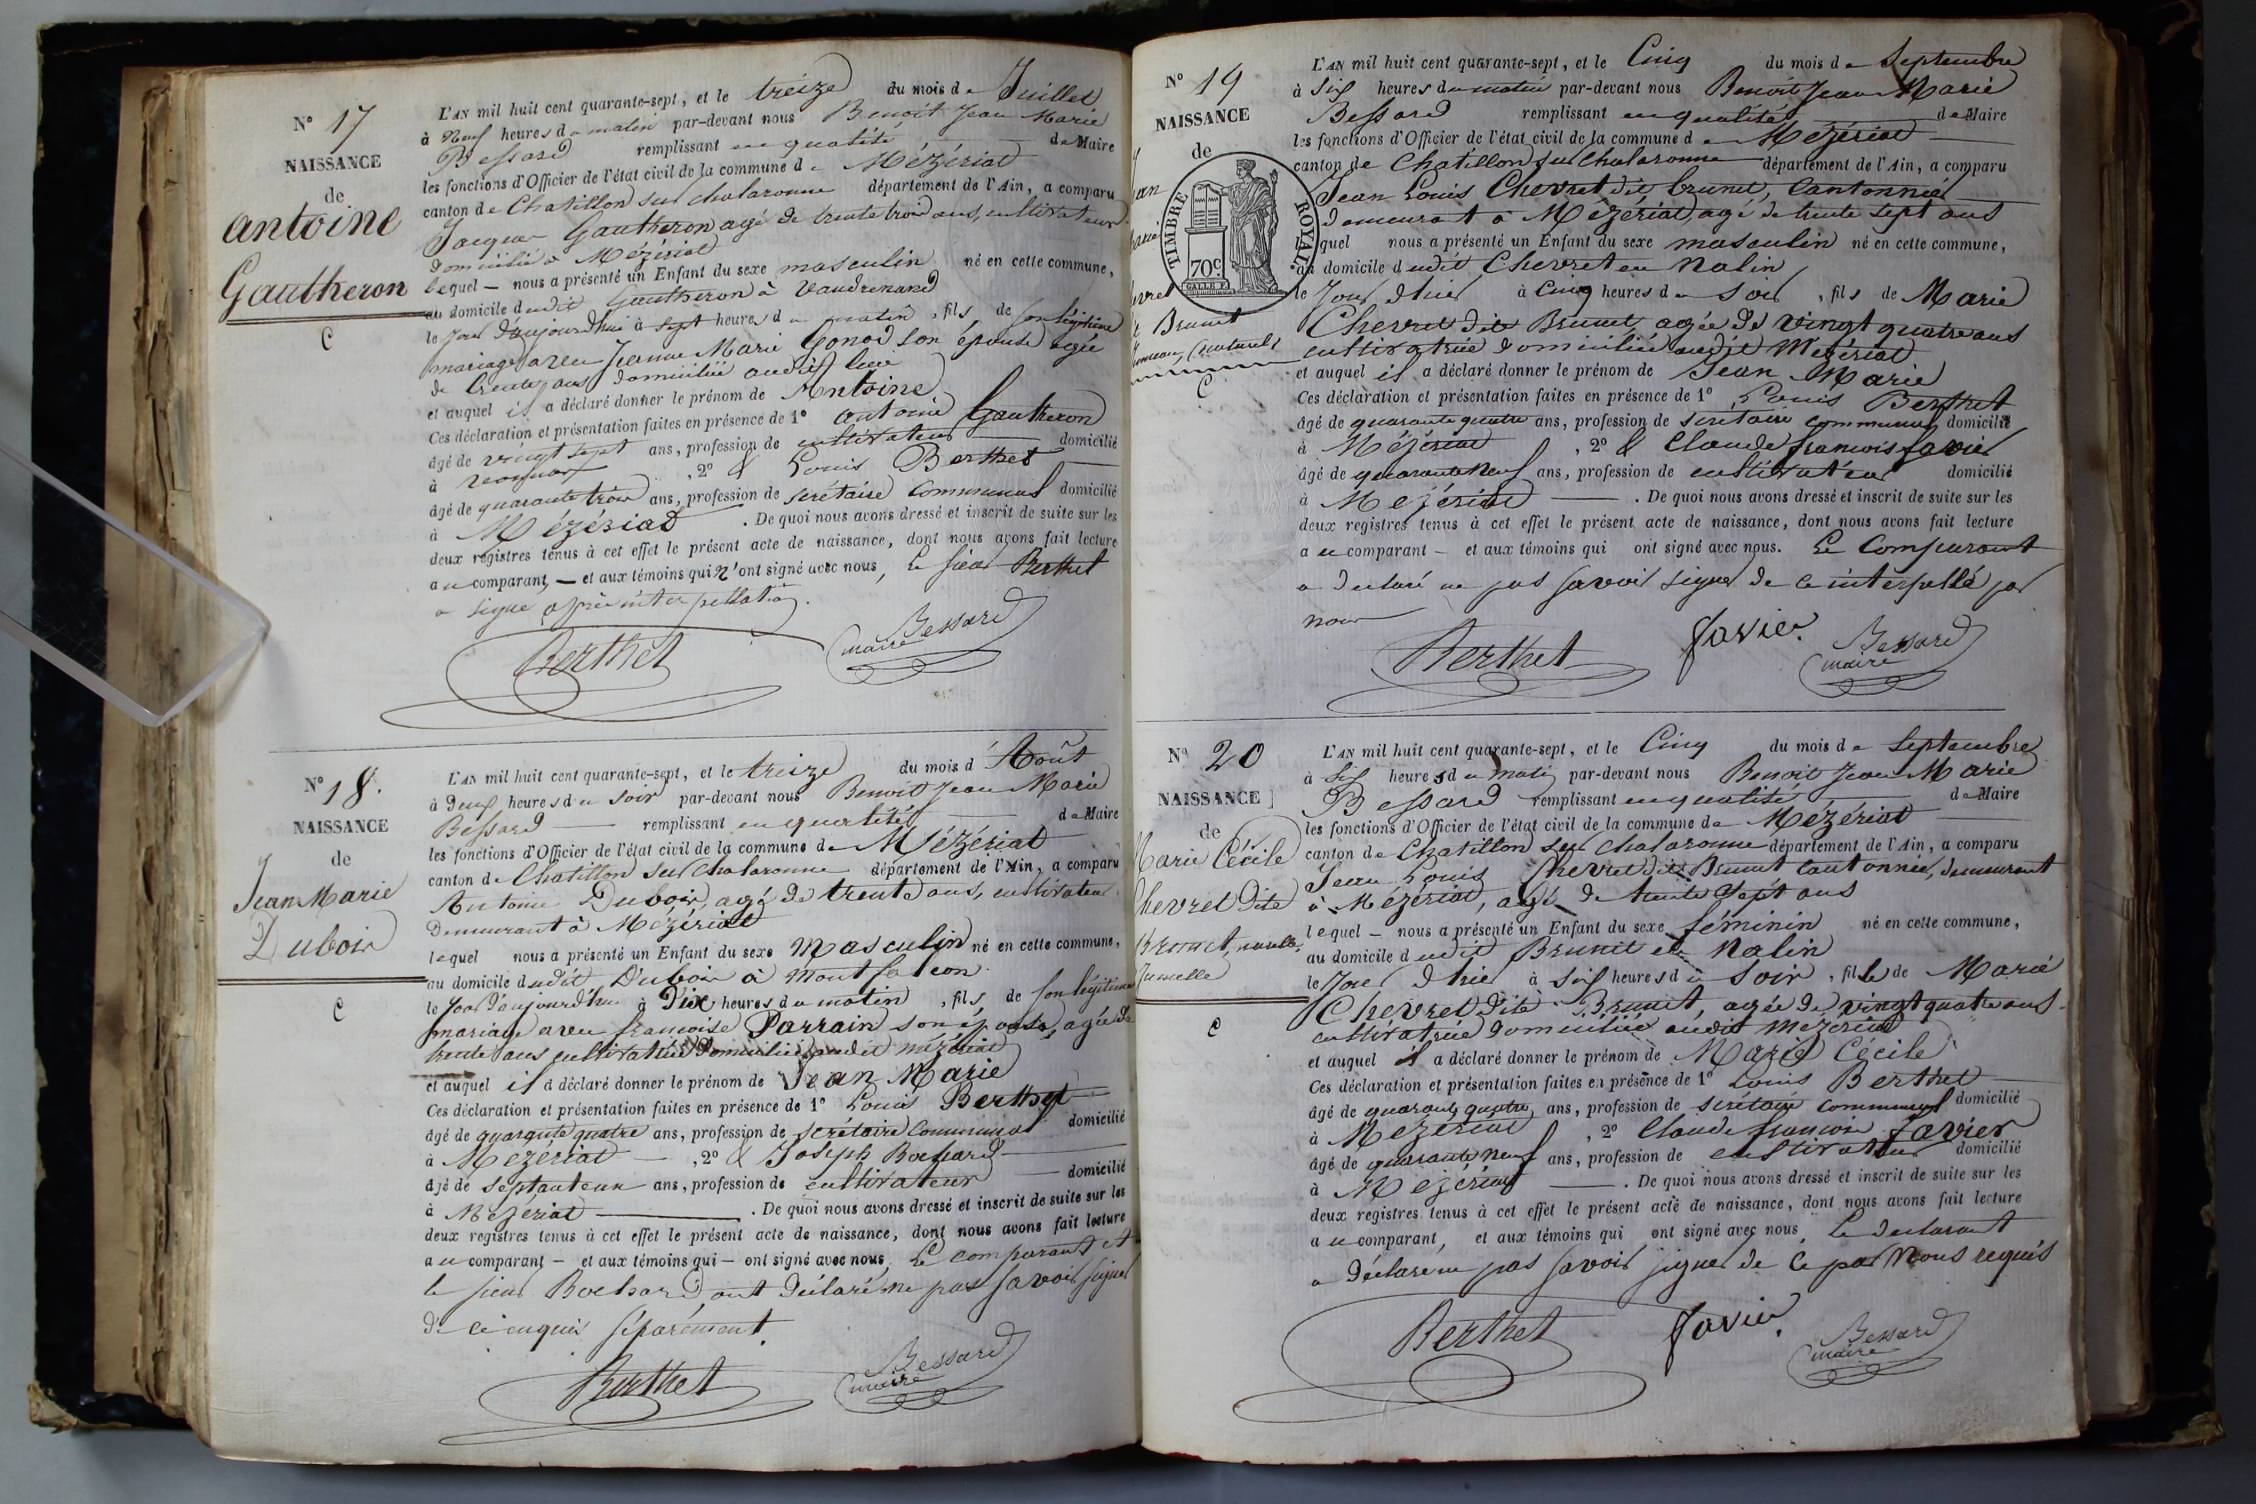 N° 17
NAISSANCE
de
antoine
Gautheron
C
L'AN mil huit cent quarante-sept, et le treize du mois de Juillet
à Neuf heures du matin par-devant nous Benoit Jean Marie
Bessard remplissant en qualité de Maire
les fonctions d'Officier de l'état civil de la commune de Mézériat
canton de Chatillon sur chalaronne département de l'Ain, a comparu
Jacques Gautheron agé de trente trois ans, cultivateur
domicilié à Mézériat
lequel — nous a présenté un Enfant du sexe masculin né en cette commune,
au domicile dudit Gautheron à Vaudrenand
le jour d'aujourd'hui à sept heures du matin, fils de son légitime
mariage avec Jeanne Marie Gonod son épouse agée
de trente ans domiciliée audit lieu
et auquel il a déclaré donner le prénom de Antoine
Ces déclaration et présentation faites en présence de 1° antoine Gautheron
âgé de vingt sept ans, profession de cultivateur domicilié
à , 2° & Louis Berthet
âgé de quarante trois ans, profession de secrétaire communal domicilié
à Mézériat . De quoi nous avons dressé et inscrit de suite sur les
deux registres tenus à cet effet le présent acte de naissance, dont nous avons fait lecture
au comparant, — et aux témoins qui n'ont signé avec nous, le sieur Berthet
a signé après interpellation.
Berthet Bessard
maire
N° 18.
NAISSANCE
de
Jean Marie
Dubois
C
L'AN mil huit cent quarante-sept, et le treize du mois d'Août
à deux heures du soir par-devant nous Benoit Jean Marie
Bessard remplissant en qualité de Maire
les fonctions d'Officier de l'état civil de la commune de Mézériat
canton de Chatillon sur Chalaronne département de l'Ain, a comparu
Antoine Dubois, agé de trente ans, cultivateur
demeurant à Mézériat
lequel nous a présenté un Enfant du sexe Masculin né en cette commune,
au domicile dudit Dubois à Montfalcon
le jour d'aujourd'hui à Dix heures du matin, fils, de son légitime
mariage avec françoise Parrain son épouse, agée de
trente ans cultivatrice domiciliée audit mézériat
et auquel il a déclaré donner le prénom de Jean Marie
Ces déclaration et présentation faites en présence de 1° Louis Berthet
âgé de quarante quatre ans, profession de secrétaire communal domicilié
à Mézériat — , 2° & Joseph Bochard
âgé de septante un ans, profession de cultivateur domicilié
à Mézériat . De quoi nous avons dressé et inscrit de suite sur les
deux registres tenus à cet effet le présent acte de naissance, dont nous avons fait lecture
au comparant — et aux témoins qui — ont signé avec nous, Le comparant et
le sieur Bochard, ont déclaré ne pas savoir signer
de ce enquis séparément.
Berthet Bessard
maire
N° 19
NAISSANCE
de
TIMBRE ROYAL
70c
Brunet
C
L'AN mil huit cent quarante-sept, et le Cinq du mois de Septembre
à six heures du matin par-devant nous Benoit Jean Marie
Bessard remplissant en qualité de Maire
les fonctions d'Officier de l'état civil de la commune de Mézériat
canton de Chatillon sur Chalaronne département de l'Ain, a comparu
Jean Louis Chevret dit brunet, Cantonnier
demeurant à Mézériat, agé de trente sept ans
quel nous a présenté un Enfant du sexe masculin né en cette commune,
au domicile dudit Chevret en Nalin
le Jour d'hier à cinq heures du soir, fils de Marie
Chevret dite Brunet, agée de vingt quatre ans
cultivatrice domiciliée audit Mézériat
et auquel il a déclaré donner le prénom de Jean Marie
Ces déclaration et présentation faites en présence de 1° Louis Berthet
âgé de quarante quatre ans, profession de secrétaire communal domicilié
à Mézériat , 2° & Claude françois favier
âgé de quarante neuf ans, profession de cultivateur domicilié
à Mézériat . De quoi nous avons dressé et inscrit de suite sur les
deux registres tenus à cet effet le présent acte de naissance, dont nous avons fait lecture
au comparant — et aux témoins qui ont signé avec nous. Le Comparant
a déclaré ne pas savoir signer de ce interpellé par
nous
Berthet favier Bessard
maire
N° 20
NAISSANCE
de
Marie Cécile
Chevret dite
Brunet, naturelle,
Jumelle
C
L'AN mil huit cent quarante-sept, et le Cinq du mois de Septembre
à six heures du matin par-devant nous Benoit Jean Marie
Bessard remplissant en qualité de Maire
les fonctions d'Officier de l'état civil de la commune de Mézériat
canton de Chatillon sur Chalaronne département de l'Ain, a comparu
Jean Louis Chevret dit Brunet cantonnier, demeurant
à Mézériat, agé de trente sept ans
lequel — nous a présenté un Enfant du sexe féminin né en cette commune,
au domicile dudit Brunet en Nalin
le Jour d'hier à six heures du soir, fille de Marie
Chevret dite Brunet, agée de vingt quatre ans
cultivatrice domiciliée audit Mézériat
et auquel il a déclaré donner le prénom de Marie Cécile
Ces déclaration et présentation faites en présence de 1° Louis Berthet
âgé de quarante quatre ans, profession de secrétaire communal domicilié
à Mézériat , 2° Claude françois favier
âgé de quarante neuf ans, profession de cultivateur domicilié
à Mézériat . De quoi nous avons dressé et inscrit de suite sur les
deux registres tenus à cet effet le présent acte de naissance, dont nous avons fait lecture
au comparant, et aux témoins qui ont signé avec nous, Le declarant
a déclaré ne pas savoir signer de ce par Nous requis
Berthet favier Bessard
maire